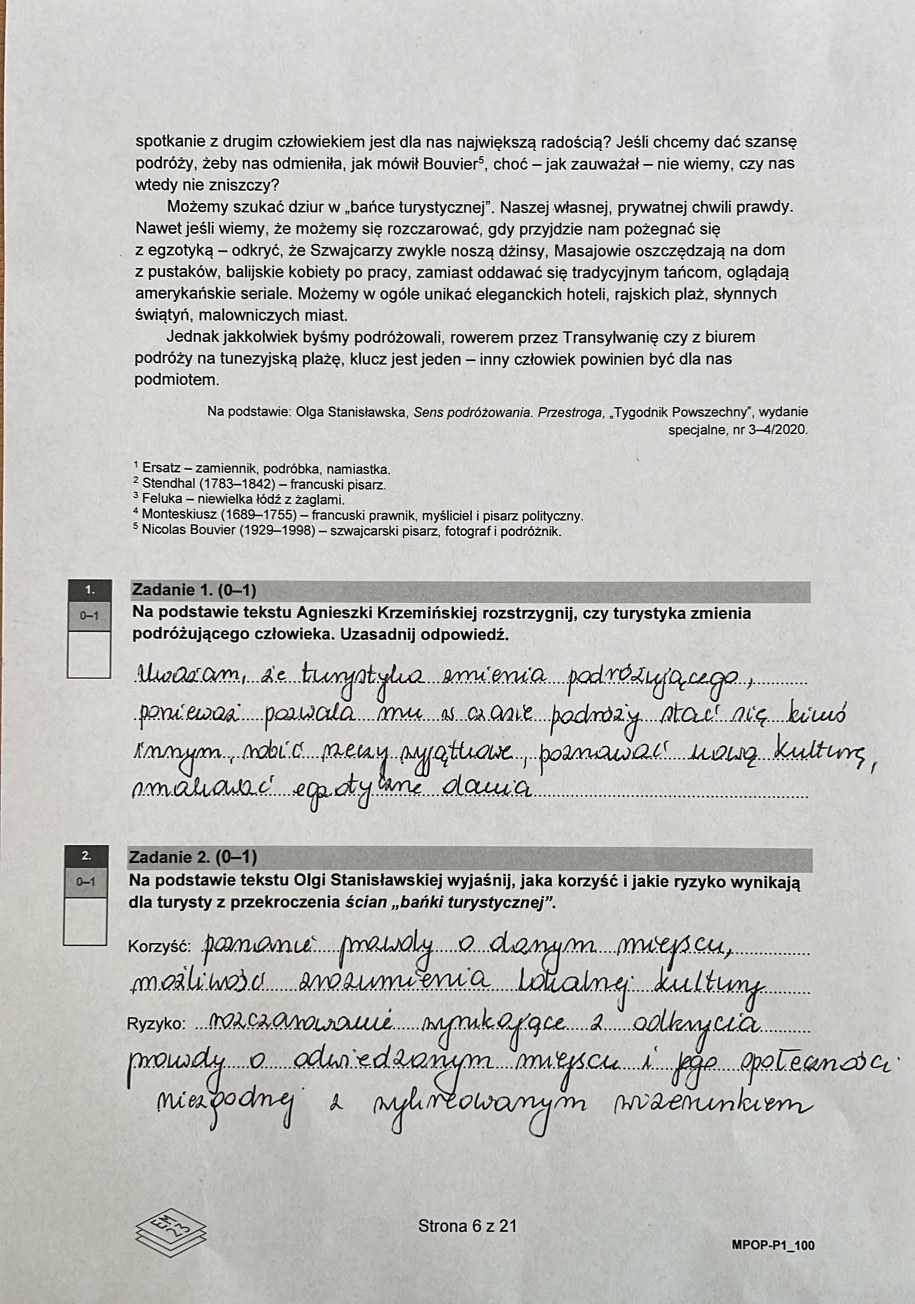 spotkanie z drugim człowiekiem jest dla nas największą radością? Jeśli chcemy dać szansę
podróży, żeby nas odmieniła, jak mówił Bouvier⁵, choć – jak zauważał – nie wiemy, czy nas
wtedy nie zniszczy?
Możemy szukać dziur w „bańce turystycznej”. Naszej własnej, prywatnej chwili prawdy.
Nawet jeśli wiemy, że możemy się rozczarować, gdy przyjdzie nam pożegnać się
z egzotyką – odkryć, że Szwajcarzy zwykle noszą dżinsy, Masajowie oszczędzają na dom
z pustaków, balijskie kobiety po pracy, zamiast oddawać się tradycyjnym tańcom, oglądają
amerykańskie seriale. Możemy w ogóle unikać eleganckich hoteli, rajskich plaż, słynnych
świątyń, malowniczych miast.
Jednak jakkolwiek byśmy podróżowali, rowerem przez Transylwanię czy z biurem
podróży na tunezyjską plażę, klucz jest jeden – inny człowiek powinien być dla nas
podmiotem.
Na podstawie: Olga Stanisławska, Sens podróżowania. Przestroga, „Tygodnik Powszechny”, wydanie
specjalne, nr 3–4/2020.
¹ Ersatz – zamiennik, podróbka, namiastka.
² Stendhal (1783–1842) – francuski pisarz.
³ Feluka – niewielka łódź z żaglami.
⁴ Monteskiusz (1689–1755) – francuski prawnik, myśliciel i pisarz polityczny.
⁵ Nicolas Bouvier (1929–1998) – szwajcarski pisarz, fotograf i podróżnik.
1.
0–1
Zadanie 1. (0–1)
Na podstawie tekstu Agnieszki Krzemińskiej rozstrzygnij, czy turystyka zmienia
podróżującego człowieka. Uzasadnij odpowiedź.
Uważam, że turystyka zmienia podróżującego,
ponieważ pozwala mu w czasie podróży stać się kimś
innym, robić rzeczy wyjątkowe, poznawać nową kulturę,
smakować egzotyczne dania
2.
0–1
Zadanie 2. (0–1)
Na podstawie tekstu Olgi Stanisławskiej wyjaśnij, jaka korzyść i jakie ryzyko wynikają
dla turysty z przekroczenia ścian „bańki turystycznej”.
Korzyść: poznanie prawdy o danym miejscu,
możliwość zrozumienia lokalnej kultury
Ryzyko: rozczarowanie wynikające z odkrycia
prawdy o odwiedzanym miejscu i jego społeczności
niezgodnej z wykreowanym wizerunkiem
EM
23
Strona 6 z 21
MPOP-P1_100